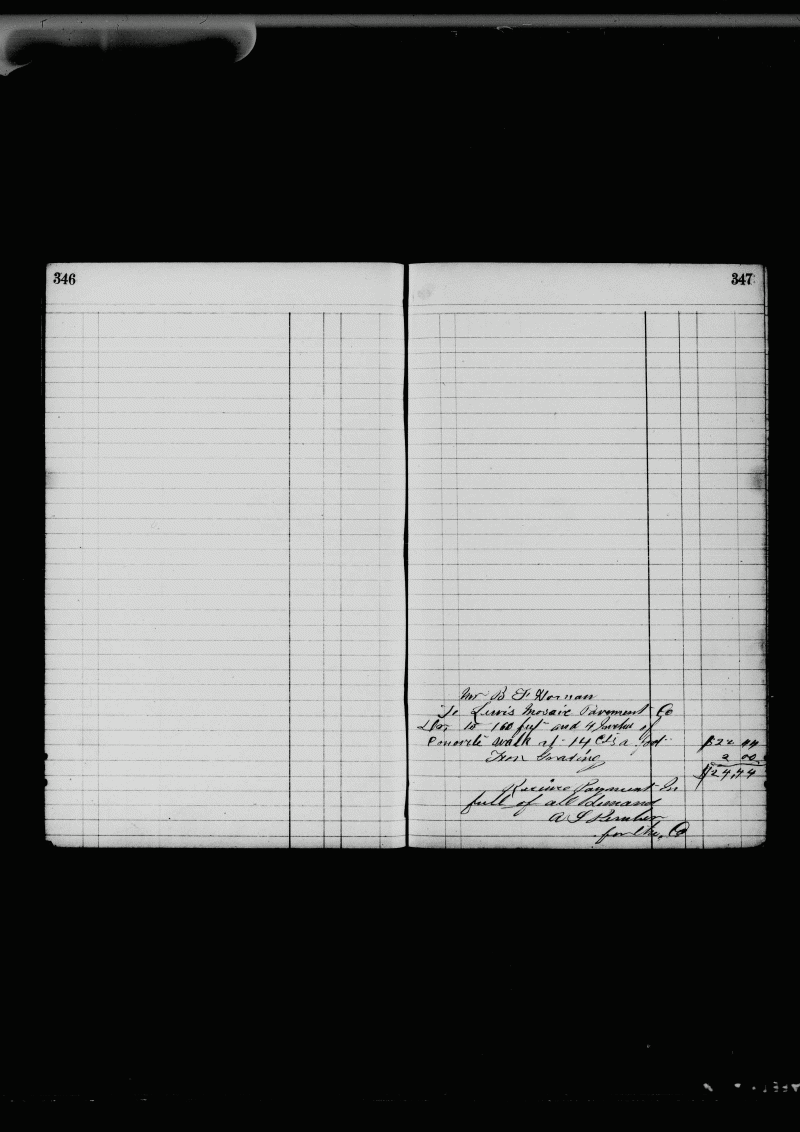 346
347
Mr B F Hornan
To Lewis Mosaic Pavement Co
Dr, to 160 feet and 4 Inches of
Concrete Walk at 14 Cts a foot $22 44
Iron Grating 2 00
$24,44
Receive Payment In
full of all demand
A S
for the Co